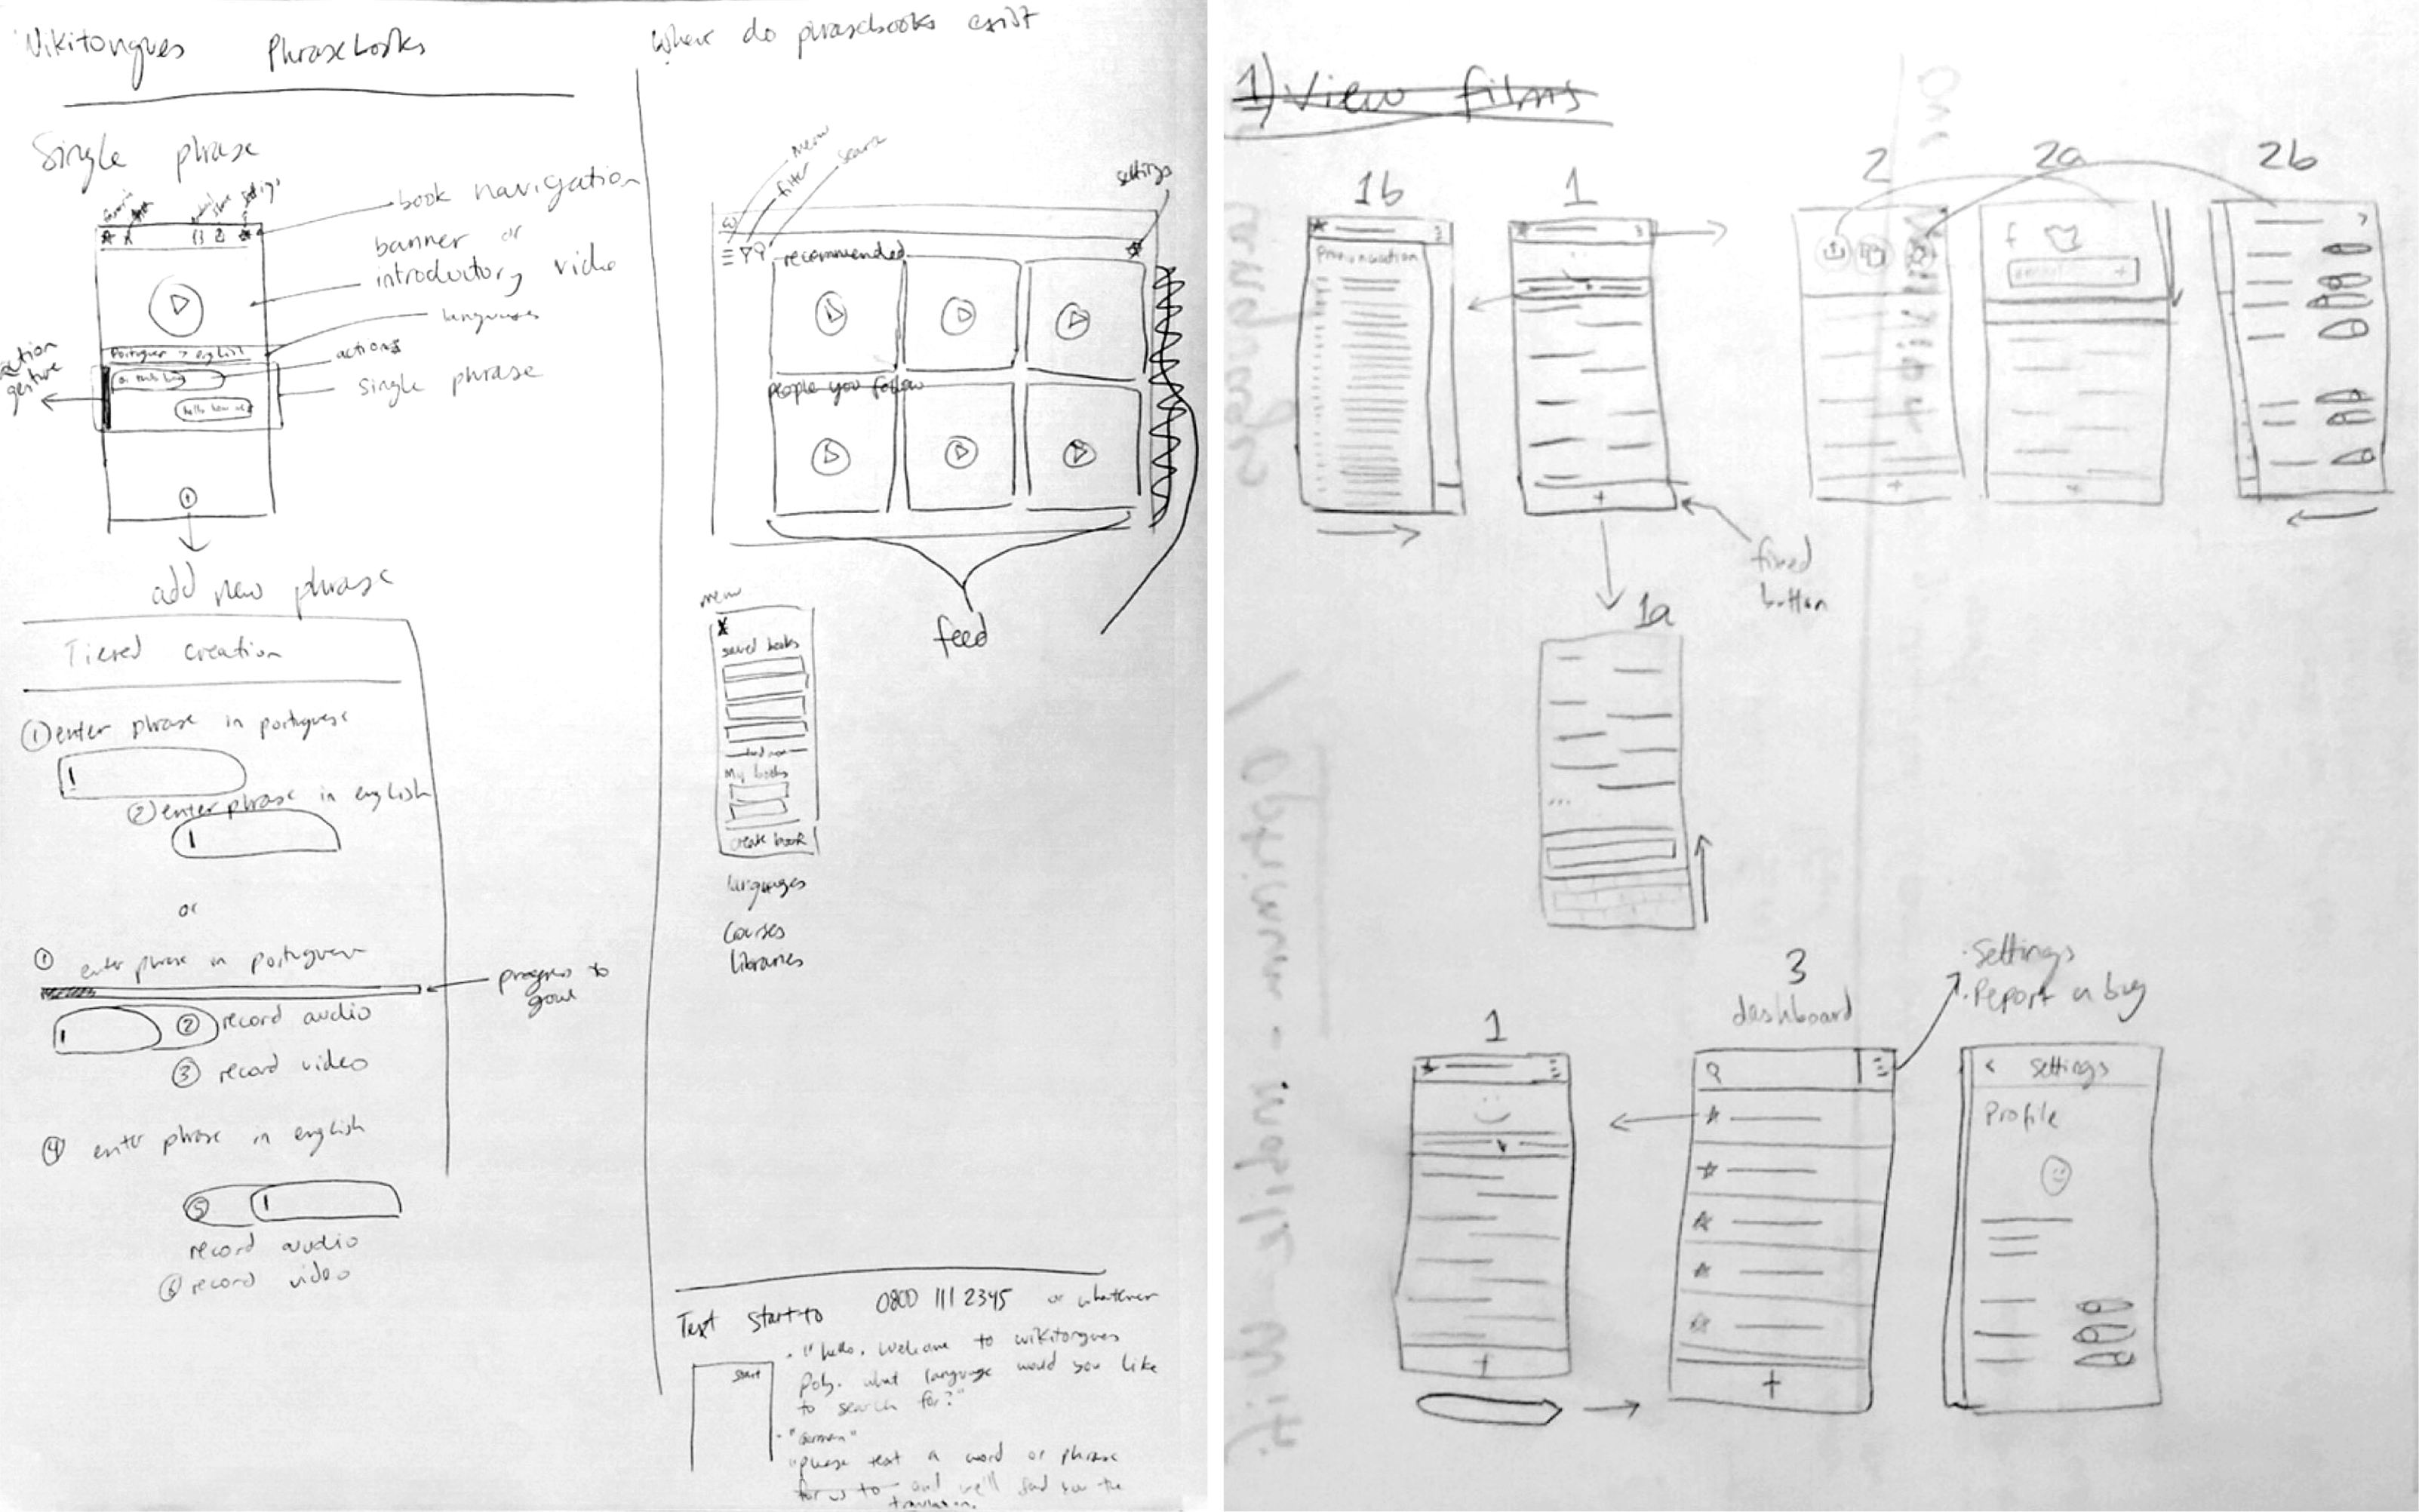 Wikitongues Phrasebooks
Single phrase
settings
book navigation
banner or
introductory video
languages
actions
single phrase
action
gesture
Portuguese → english
add new phrase
Tiered creation
① enter phrase in portuguese
② enter phrase in english
or
① enter phrase in portuguese
progress to
goal
② record audio
③ record video
④ enter phrase in english
⑤
record audio
⑥ record video
where do phrasebooks exist
menu
filter
search
settings
recommended
people you follow
feed
menu
X
saved books
My books
create book
languages
Courses
libraries
Text start to 0800 111 2345 or whatever
start
"hello. Welcome to wikitongues
Poly. what language would you like
to search for?"
"German"
"please text a word or phrase
for us to and we'll send you the
translation.
1) View films
1b
1
2
2a
2b
Pronunciation
fixed
button
1a
1
3
dashboard
· Settings
· Report a bug
< settings
Profile
languages
Optimum - mobile - unit